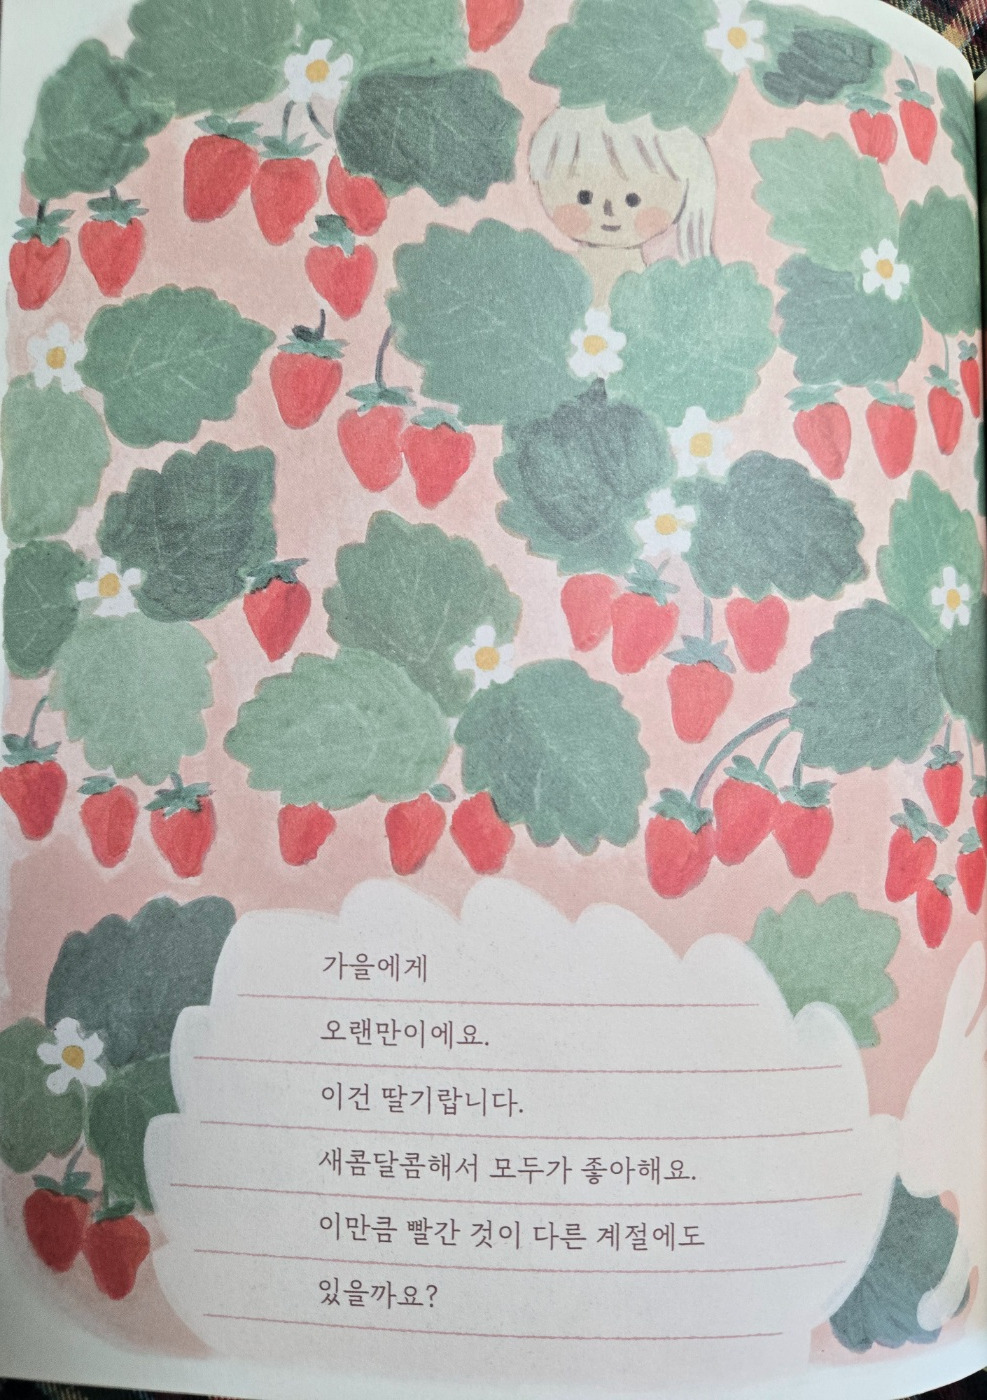 가을에게
오랜만이에요.
이건 딸기랍니다.
새콤달콤해서 모두가 좋아해요.
이만큼 빨간 것이 다른 계절에도
있을까요?